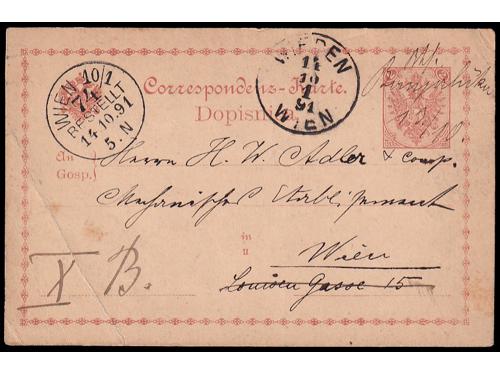 WIEN 10/1
74
BESTELLT
14.10.91
5.N
WIEDEN
14
10
91
WIEN
Correspondenz-Karte.
Dopisni
An
Gosp.
Herrn H. W. Adler & Comp.
Mechanisches Etablisement
in
u
Wien
Louisen Gasse 15
X B.